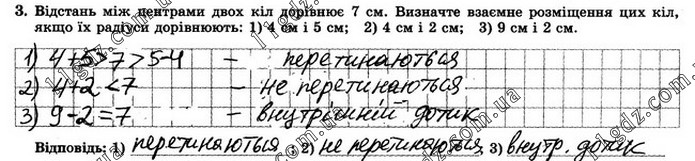 3. Відстань між центрами двох кіл дорівнює 7 см. Визначте взаємне розміщення цих кіл,
якщо їх радіуси дорівнюють: 1) 4 см і 5 см; 2) 4 см і 2 см; 3) 9 см і 2 см.
1) 4+5>7>5-4 – перетинаються
2) 4+2<7 – не перетинаються
3) 9-2=7 – внутрішній дотик
Відповідь: 1) перетинаються; 2) не перетинаються; 3) внутр. дотик